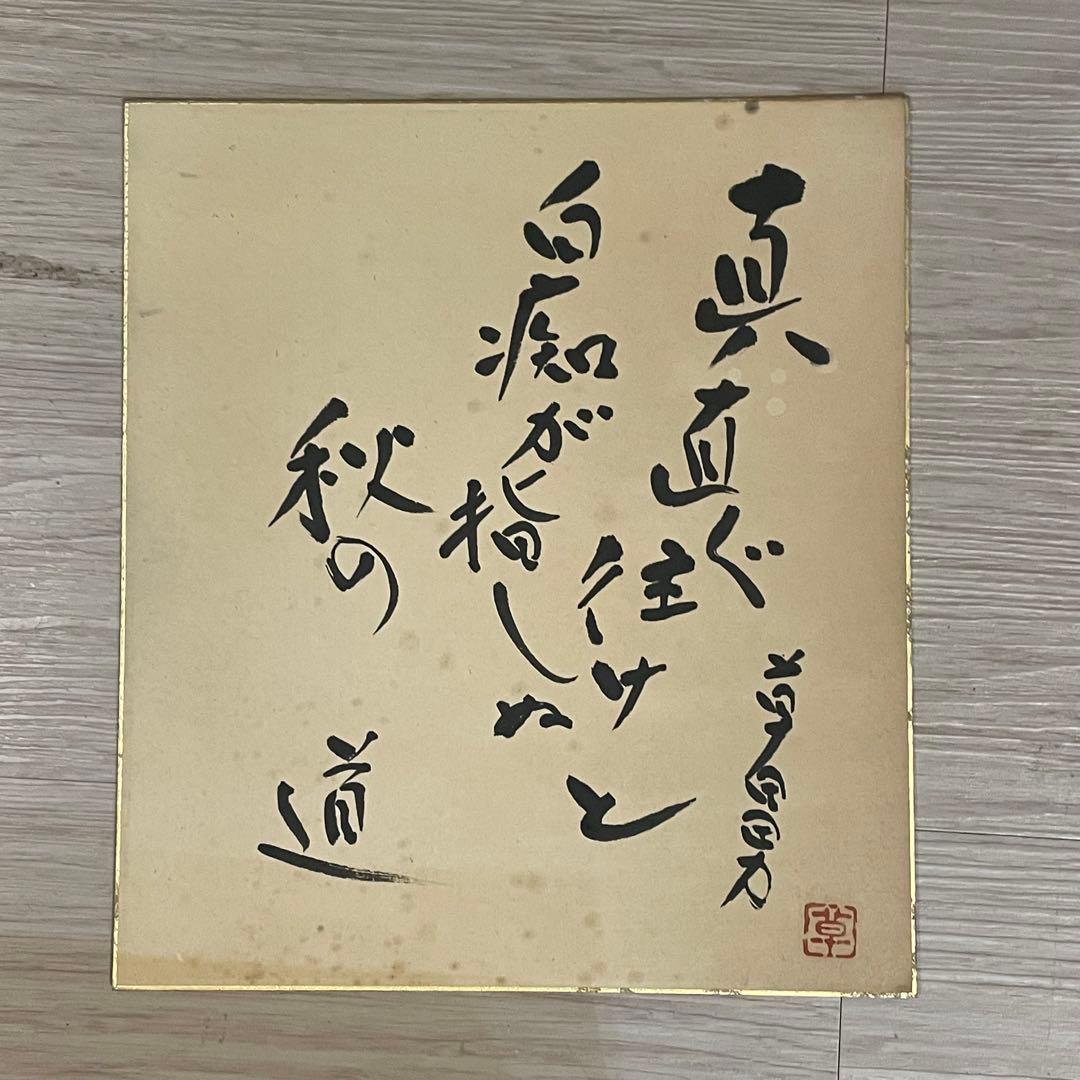 真直ぐ
往けと
白痴が指しぬ
秋の
道
草田男
草